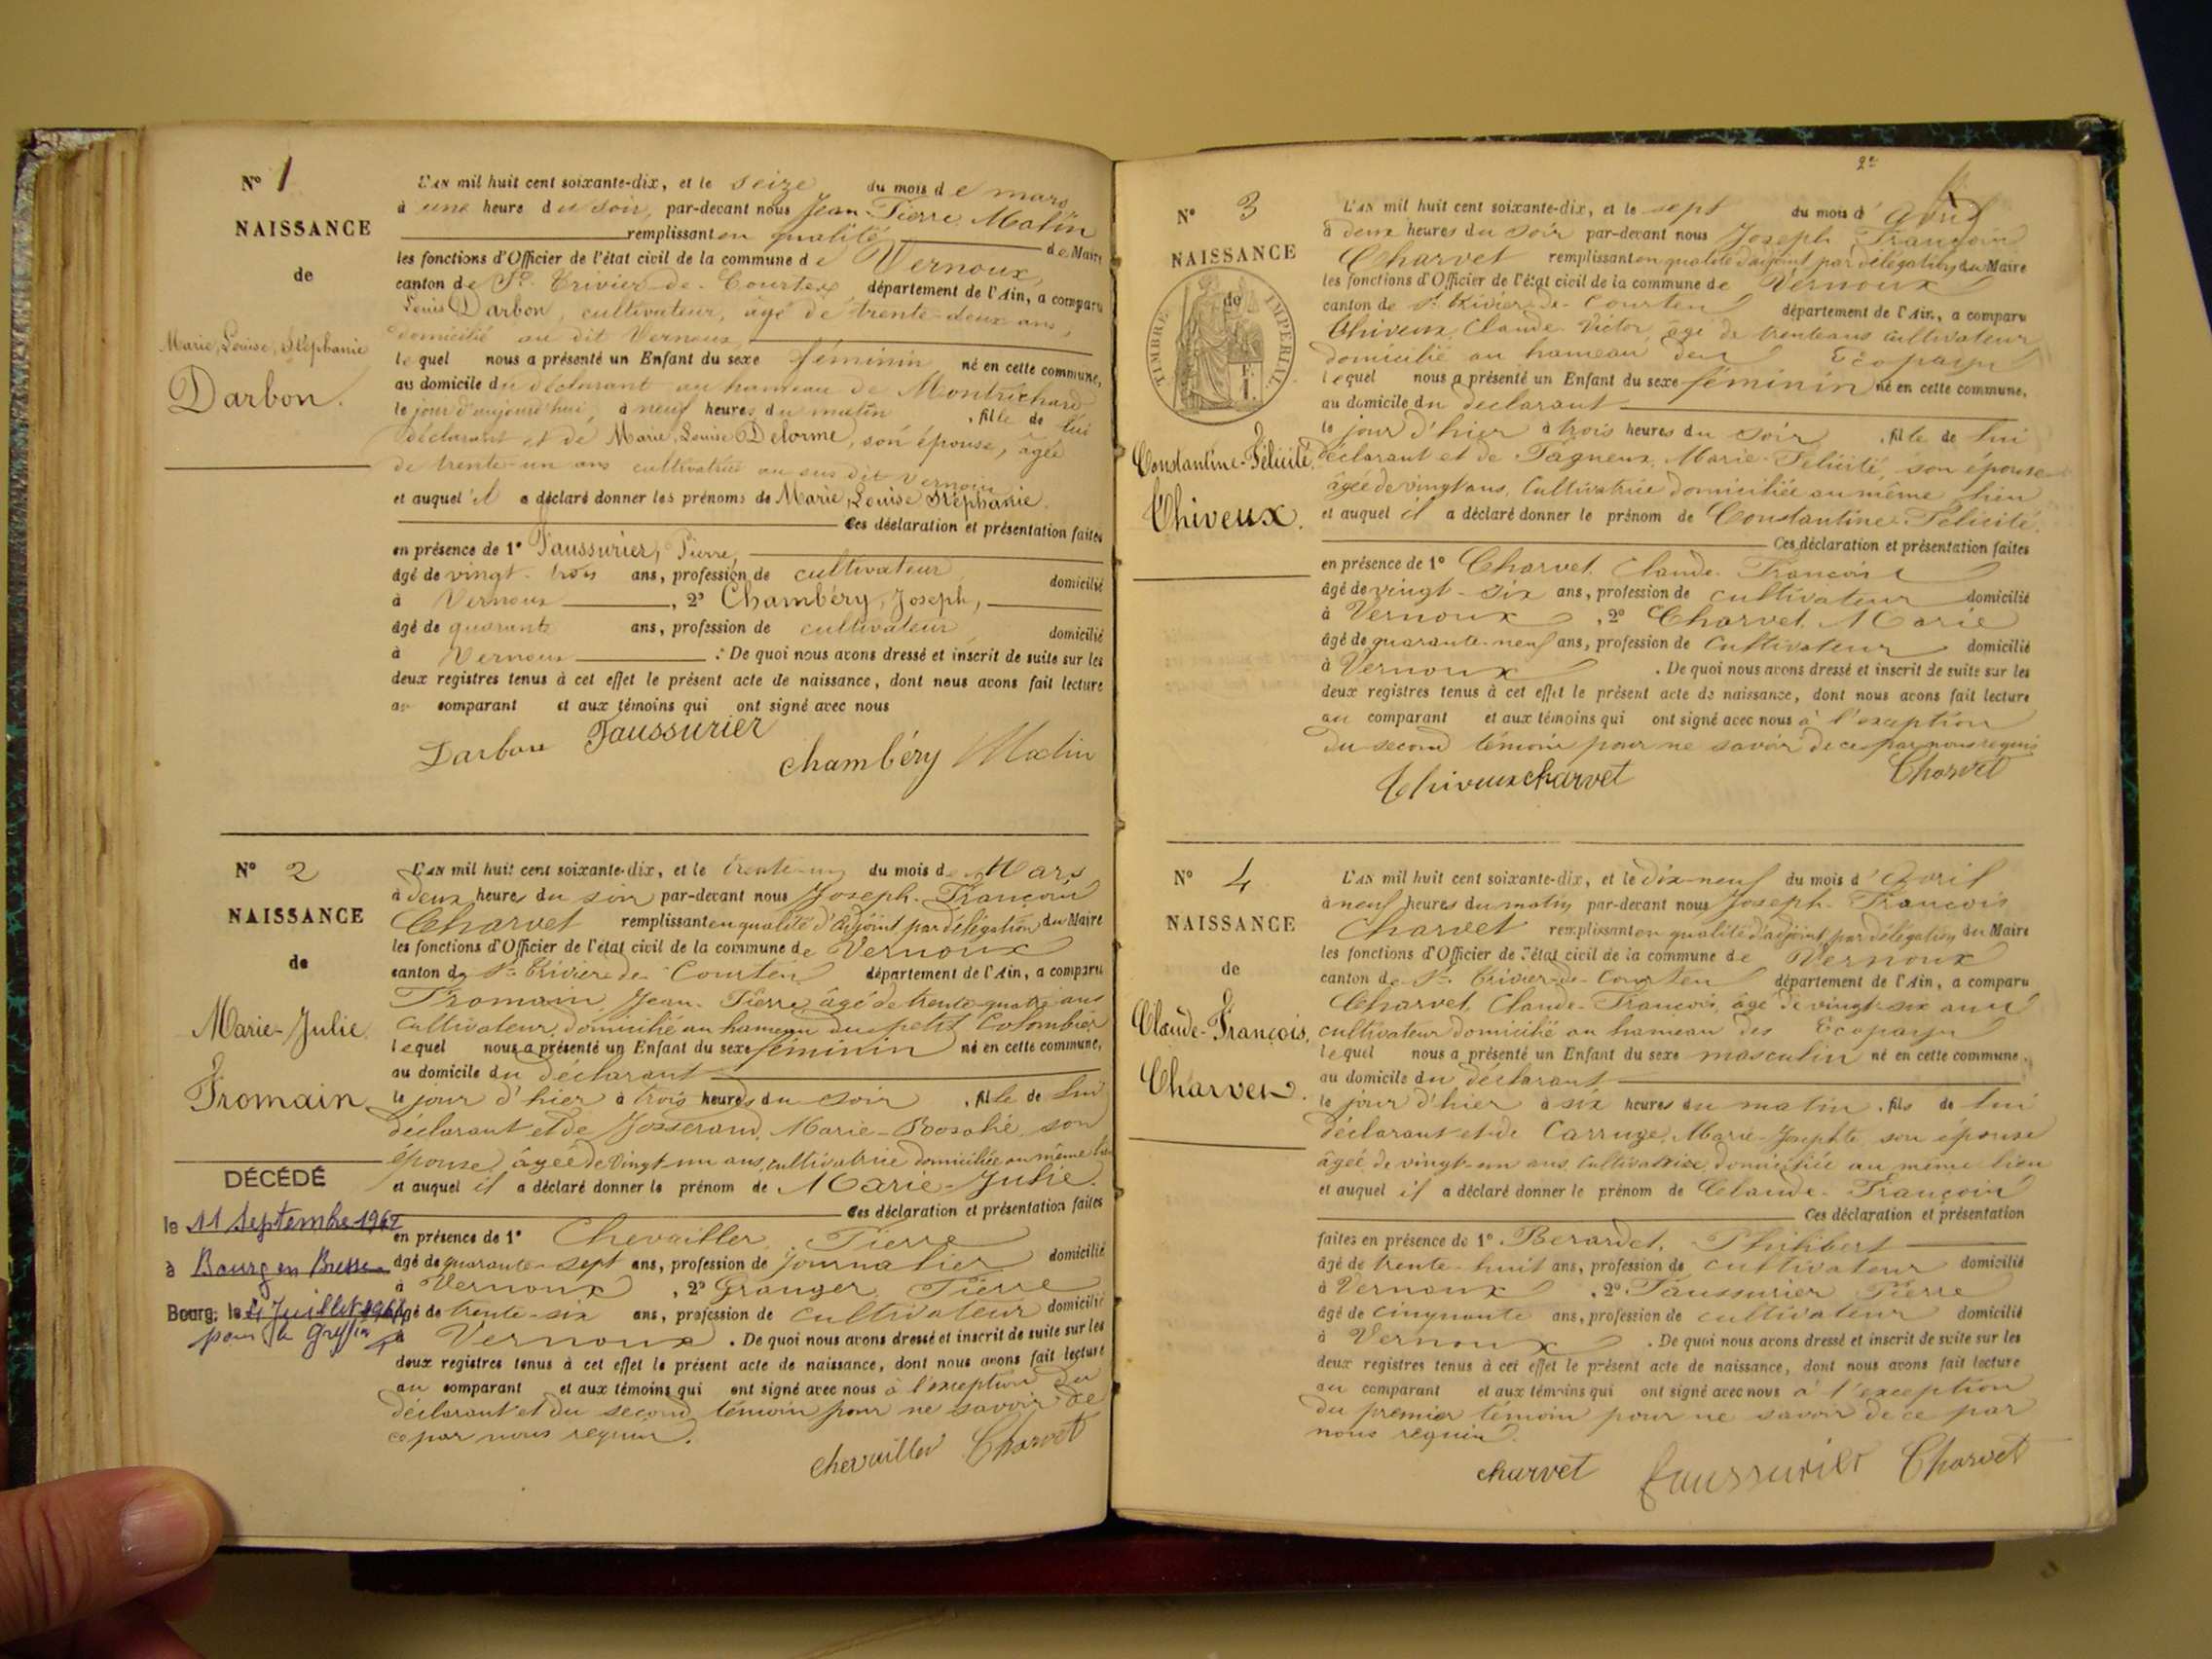 Nº 1
NAISSANCE
de
Marie, Louise, Stéphanie
Darbon.
L'AN mil huit cent soixante-dix, et le seize du mois de mars
à une heure du soir, par-devant nous Jean-Pierre Matin
remplissant en qualité de Maire
les fonctions d'Officier de l'état civil de la commune de Vernoux,
canton de St. Trivier-de-Courtes département de l'Ain, a comparu
Louis Darbon, cultivateur, âgé de trente-deux ans,
domicilié au dit Vernoux,
lequel nous a présenté un Enfant du sexe féminin né en cette commune,
au domicile du déclarant au hameau de Montrichard
le jour d'aujourd'hui, à neuf heures du matin, fille de lui
déclarant et de Marie, Louise Delorme, son épouse, âgée
de trente-un ans cultivatrice au sus dit Vernoux
et auquel il a déclaré donner les prénoms de Marie, Louise Stéphanie.
Ces déclaration et présentation faites
en présence de 1º Faussurier, Pierre,
âgé de vingt-trois ans, profession de cultivateur domicilié
à Vernoux, 2º Chambéry, Joseph,
âgé de quarante ans, profession de cultivateur domicilié
à Vernoux. De quoi nous avons dressé et inscrit de suite sur les
deux registres tenus à cet effet le présent acte de naissance, dont nous avons fait lecture
au comparant et aux témoins qui ont signé avec nous
Darbon Faussurier
chambéry Matin
Nº 2
NAISSANCE
de
Marie-Julie
Fromain
DÉCÉDÉ
le 11 Septembre 1962
à Bourg en Bresse
Bourg, le Juillet
pour le Greffier
L'AN mil huit cent soixante-dix, et le trente-un du mois de Mars
à deux heures du soir par-devant nous Joseph-François
Charvet remplissant en qualité d'adjoint par délégation du Maire
les fonctions d'Officier de l'état civil de la commune de Vernoux
canton de St. Trivier de Courtes département de l'Ain, a comparu
Fromain Jean-Pierre âgé de trente-quatre ans
cultivateur, domicilié au hameau du petit Colombier
lequel nous a présenté un Enfant du sexe féminin né en cette commune,
au domicile du déclarant
le jour d'hier à trois heures du soir, fille de lui
déclarant et de Josserand, Marie-Rosalie son
épouse, âgée de vingt-un ans, cultivatrice domiciliée au même lieu
et auquel il a déclaré donner le prénom de Marie-Julie.
Ces déclaration et présentation faites
en présence de 1º Chevailler, Pierre
âgé de quarante-sept ans, profession de journalier domicilié
à Vernoux, 2º Granger, Pierre
âgé de trente-six ans, profession de cultivateur domicilié
à Vernoux. De quoi nous avons dressé et inscrit de suite sur les
deux registres tenus à cet effet le présent acte de naissance, dont nous avons fait lecture
au comparant et aux témoins qui ont signé avec nous à l'exception du
déclarant et du second témoin pour ne savoir de
ce par nous requis.
chevailler Charvet
2e
Nº 3
NAISSANCE
de
TIMBRE IMPÉRIAL
Constantine-Félicité,
Chiveux.
L'AN mil huit cent soixante-dix, et le sept du mois d'avril
à deux heures du soir par-devant nous Joseph François
Charvet remplissant en qualité d'adjoint par délégation du Maire
les fonctions d'Officier de l'état civil de la commune de Vernoux
canton de St. Trivier-de-Courtes département de l'Ain, a comparu
Chiveux, Claude Victor, âgé de trente ans cultivateur
domicilié au hameau des Ecopays
lequel nous a présenté un Enfant du sexe féminin né en cette commune,
au domicile du déclarant
le jour d'hier à trois heures du soir, fille de lui
déclarant et de Pagneux, Marie-Félicité, son épouse
âgée de vingt ans, Cultivatrice domiciliée au même lieu
et auquel il a déclaré donner le prénom de Constantine-Félicité.
Ces déclaration et présentation faites
en présence de 1º Charvet, Claude-François
âgé de vingt-six ans, profession de cultivateur domicilié
à Vernoux, 2º Charvet, Marie
âgé de quarante-neuf ans, profession de Cultivateur domicilié
à Vernoux. De quoi nous avons dressé et inscrit de suite sur les
deux registres tenus à cet effet le présent acte de naissance, dont nous avons fait lecture
au comparant et aux témoins qui ont signé avec nous à l'exception
du second témoin pour ne savoir de ce par nous requis
Chiveux charvet Charvet
Nº 4
NAISSANCE
de
Claude-François,
Charvet.
L'AN mil huit cent soixante-dix, et le dix-neuf du mois d'Avril
à neuf heures du matin par-devant nous Joseph-François
Charvet remplissant en qualité d'adjoint par délégation du Maire
les fonctions d'Officier de l'état civil de la commune de Vernoux
canton de St. Trivier-de-Courtes département de l'Ain, a comparu
Charvet, Claude-François, âgé de vingt-six ans
cultivateur domicilié au hameau des Ecopays
lequel nous a présenté un Enfant du sexe masculin né en cette commune,
au domicile du déclarant
le jour d'hier à six heures du matin, fils de lui
déclarant et de Carruge, Marie-Josephte son épouse
âgée de vingt-un ans, Cultivatrice, domiciliée au même lieu
et auquel il a déclaré donner le prénom de Claude-François
Ces déclaration et présentation
faites en présence de 1º Berardet, Philibert
âgé de trente-huit ans, profession de cultivateur domicilié
à Vernoux, 2º Faussurier Pierre
âgé de cinquante ans, profession de cultivateur domicilié
à Vernoux. De quoi nous avons dressé et inscrit de suite sur les
deux registres tenus à cet effet le présent acte de naissance, dont nous avons fait lecture
au comparant et aux témoins qui ont signé avec nous à l'exception
du premier témoin pour ne savoir de ce par
nous requis.
charvet faussurier Charvet